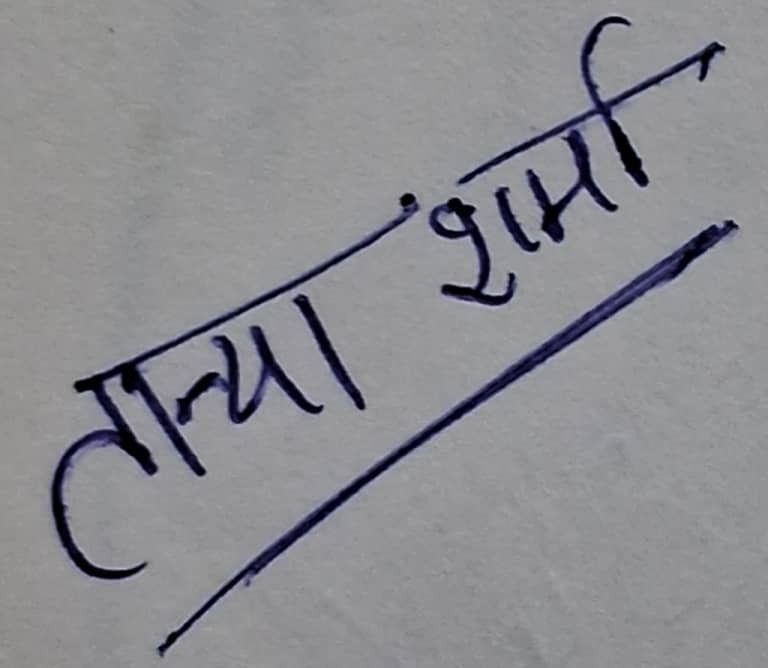 तान्या शर्मा